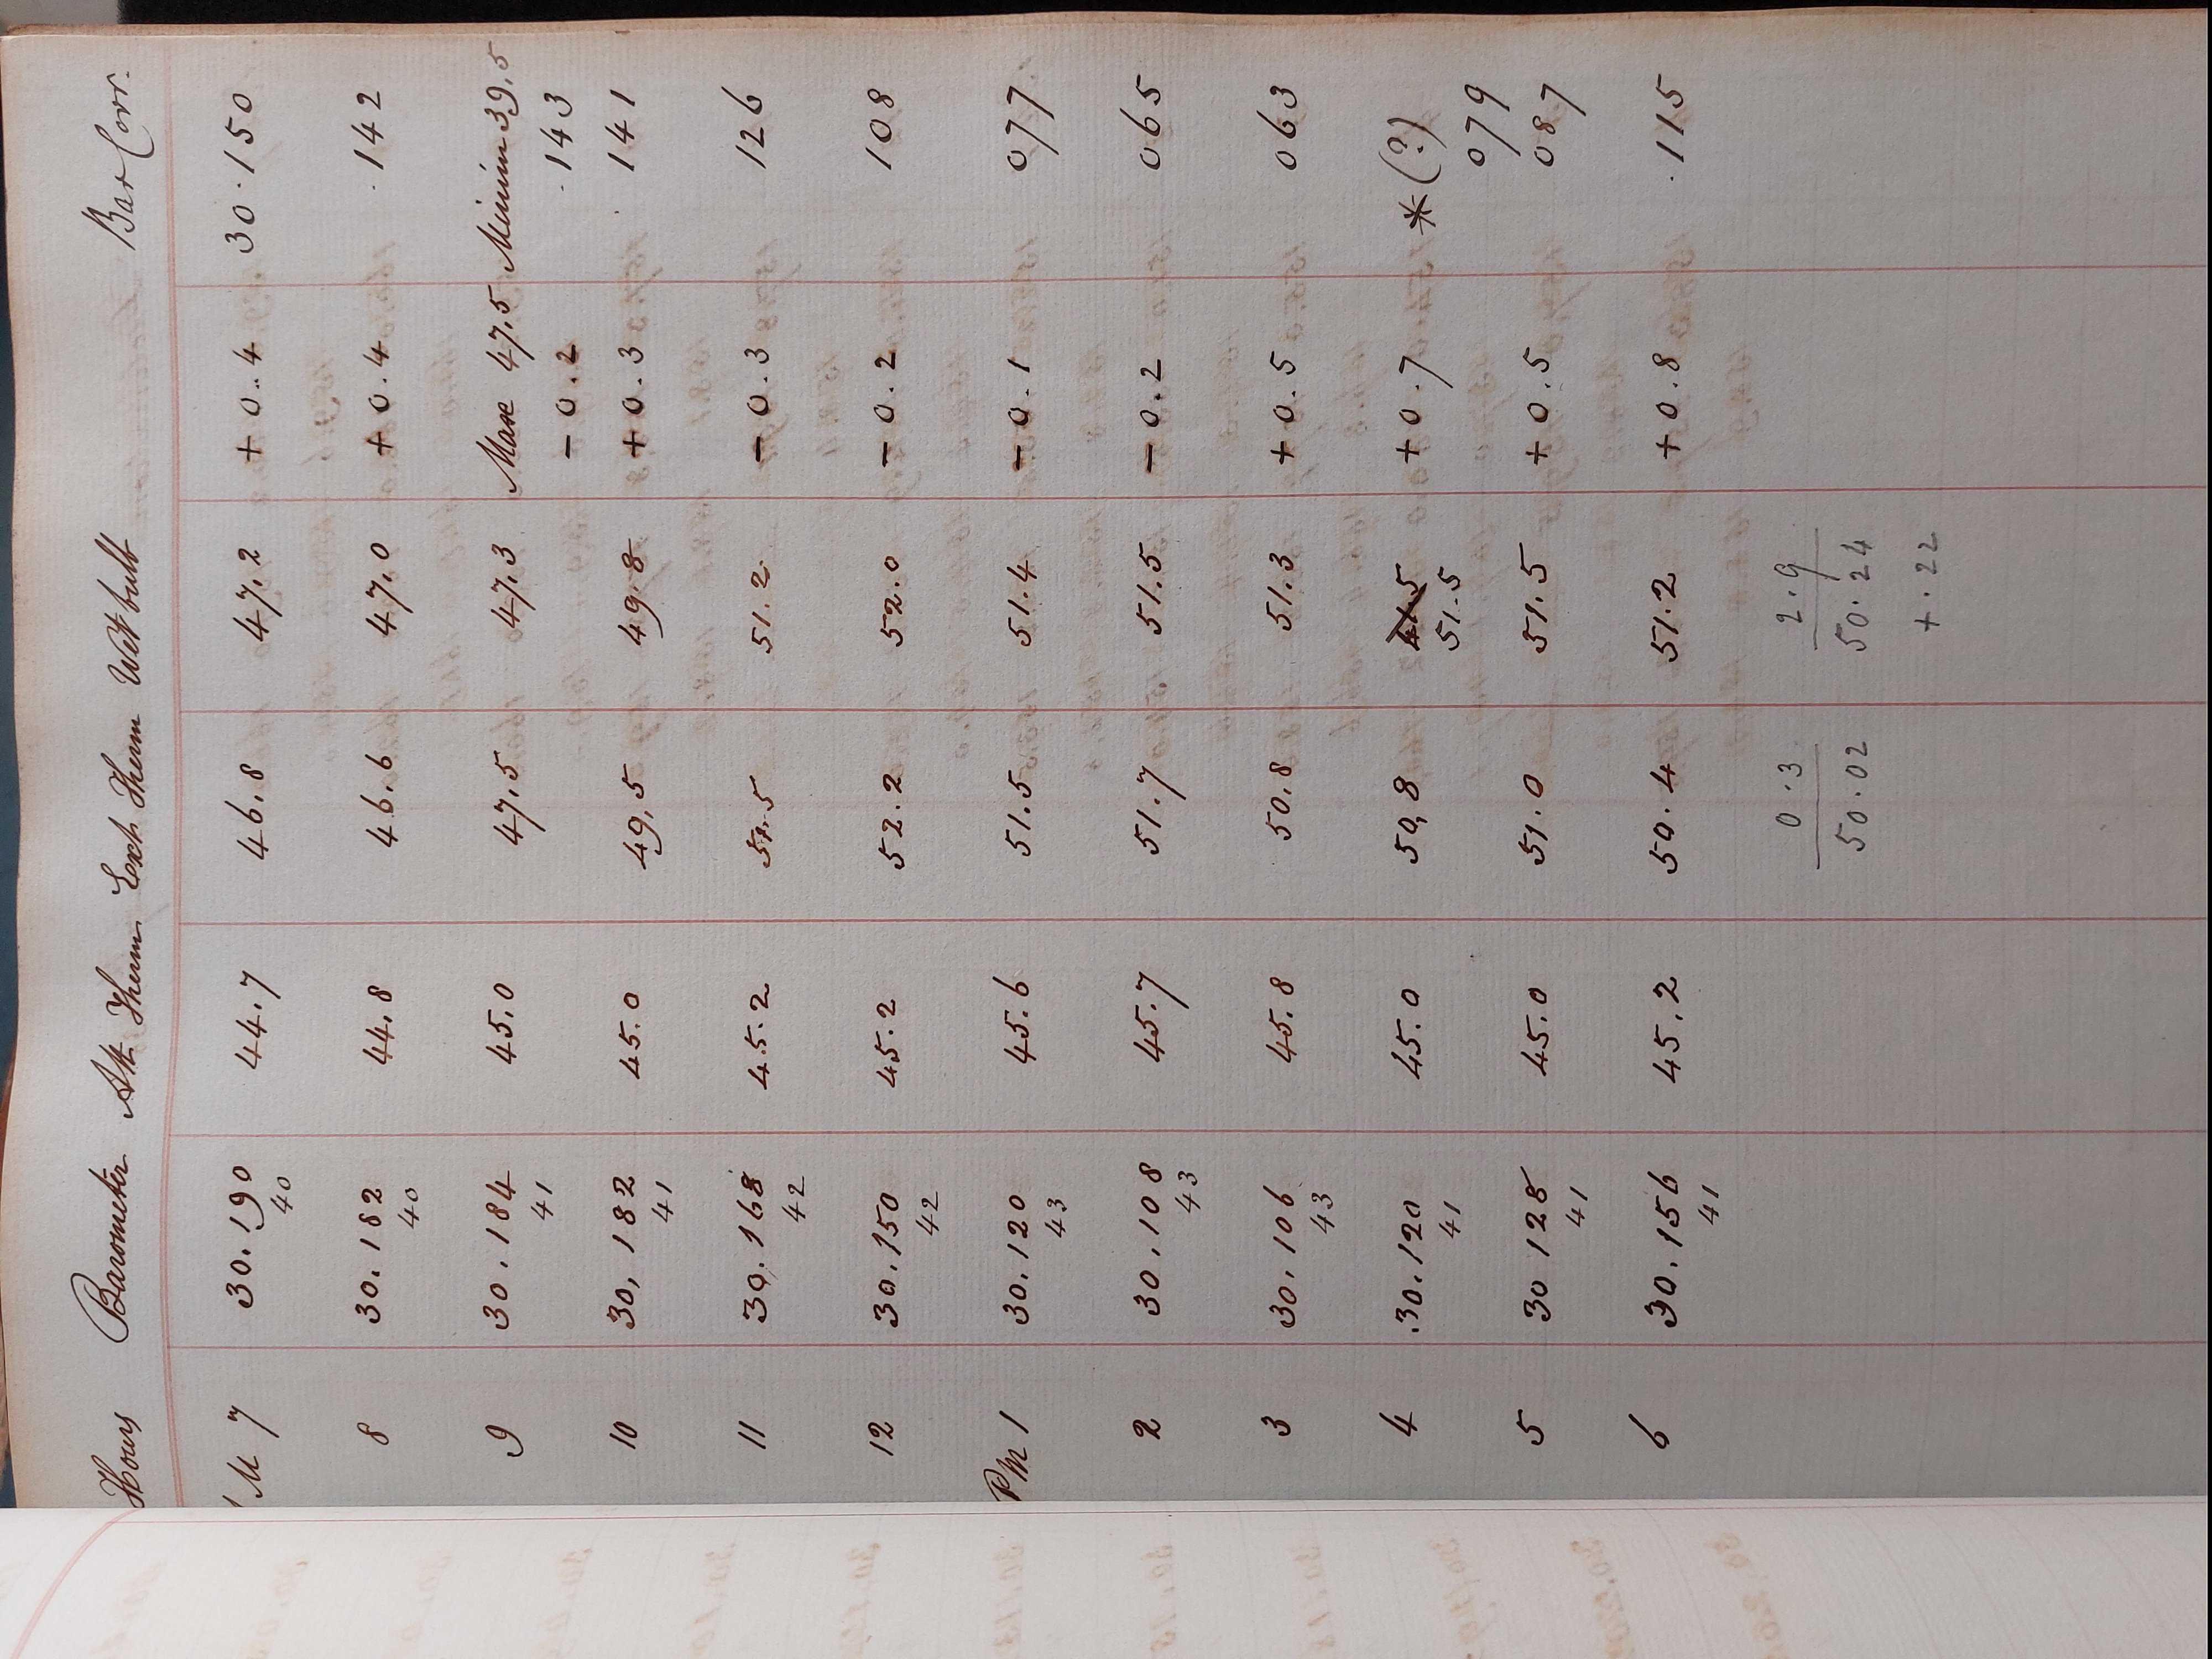 Hours Barometer Att Therm Ext Therm Wet bulb Bar Corr.
M 7 30.190 44.7 46.8 47.2 + 0.4 30.150
40
8 30.182 44.8 46.6 47.0 + 0.4 .142
40
9 30.184 45.0 47.5 47.3 Max 47.5 Minim 39.5
41 - 0.2 .143
10 30,182 45.0 49,5 49.8 + 0.3 .141
41
11 30.168 45.2 51.5 51.2 - 0.3 126
42
12 30.150 45.2 52.2 52.0 - 0.2 108
42
PM 1 30.120 45.6 51.5 51.4 - 0.1 077
43
2 30.108 45.7 51.7 51.5 - 0.2 065
43
3 30.106 45.8 50.8 51.3 + 0.5 063
43
4 30.120 45.0 50,8 41.5 + 0.7 * (?)
41 51.5 079
5 30 128 45.0 51.0 51.5 + 0.5 087
41
6 30.156 45.2 50.4 51.2 + 0.8 .115
41
0.3 2.9
50.02 50.24
+ .22